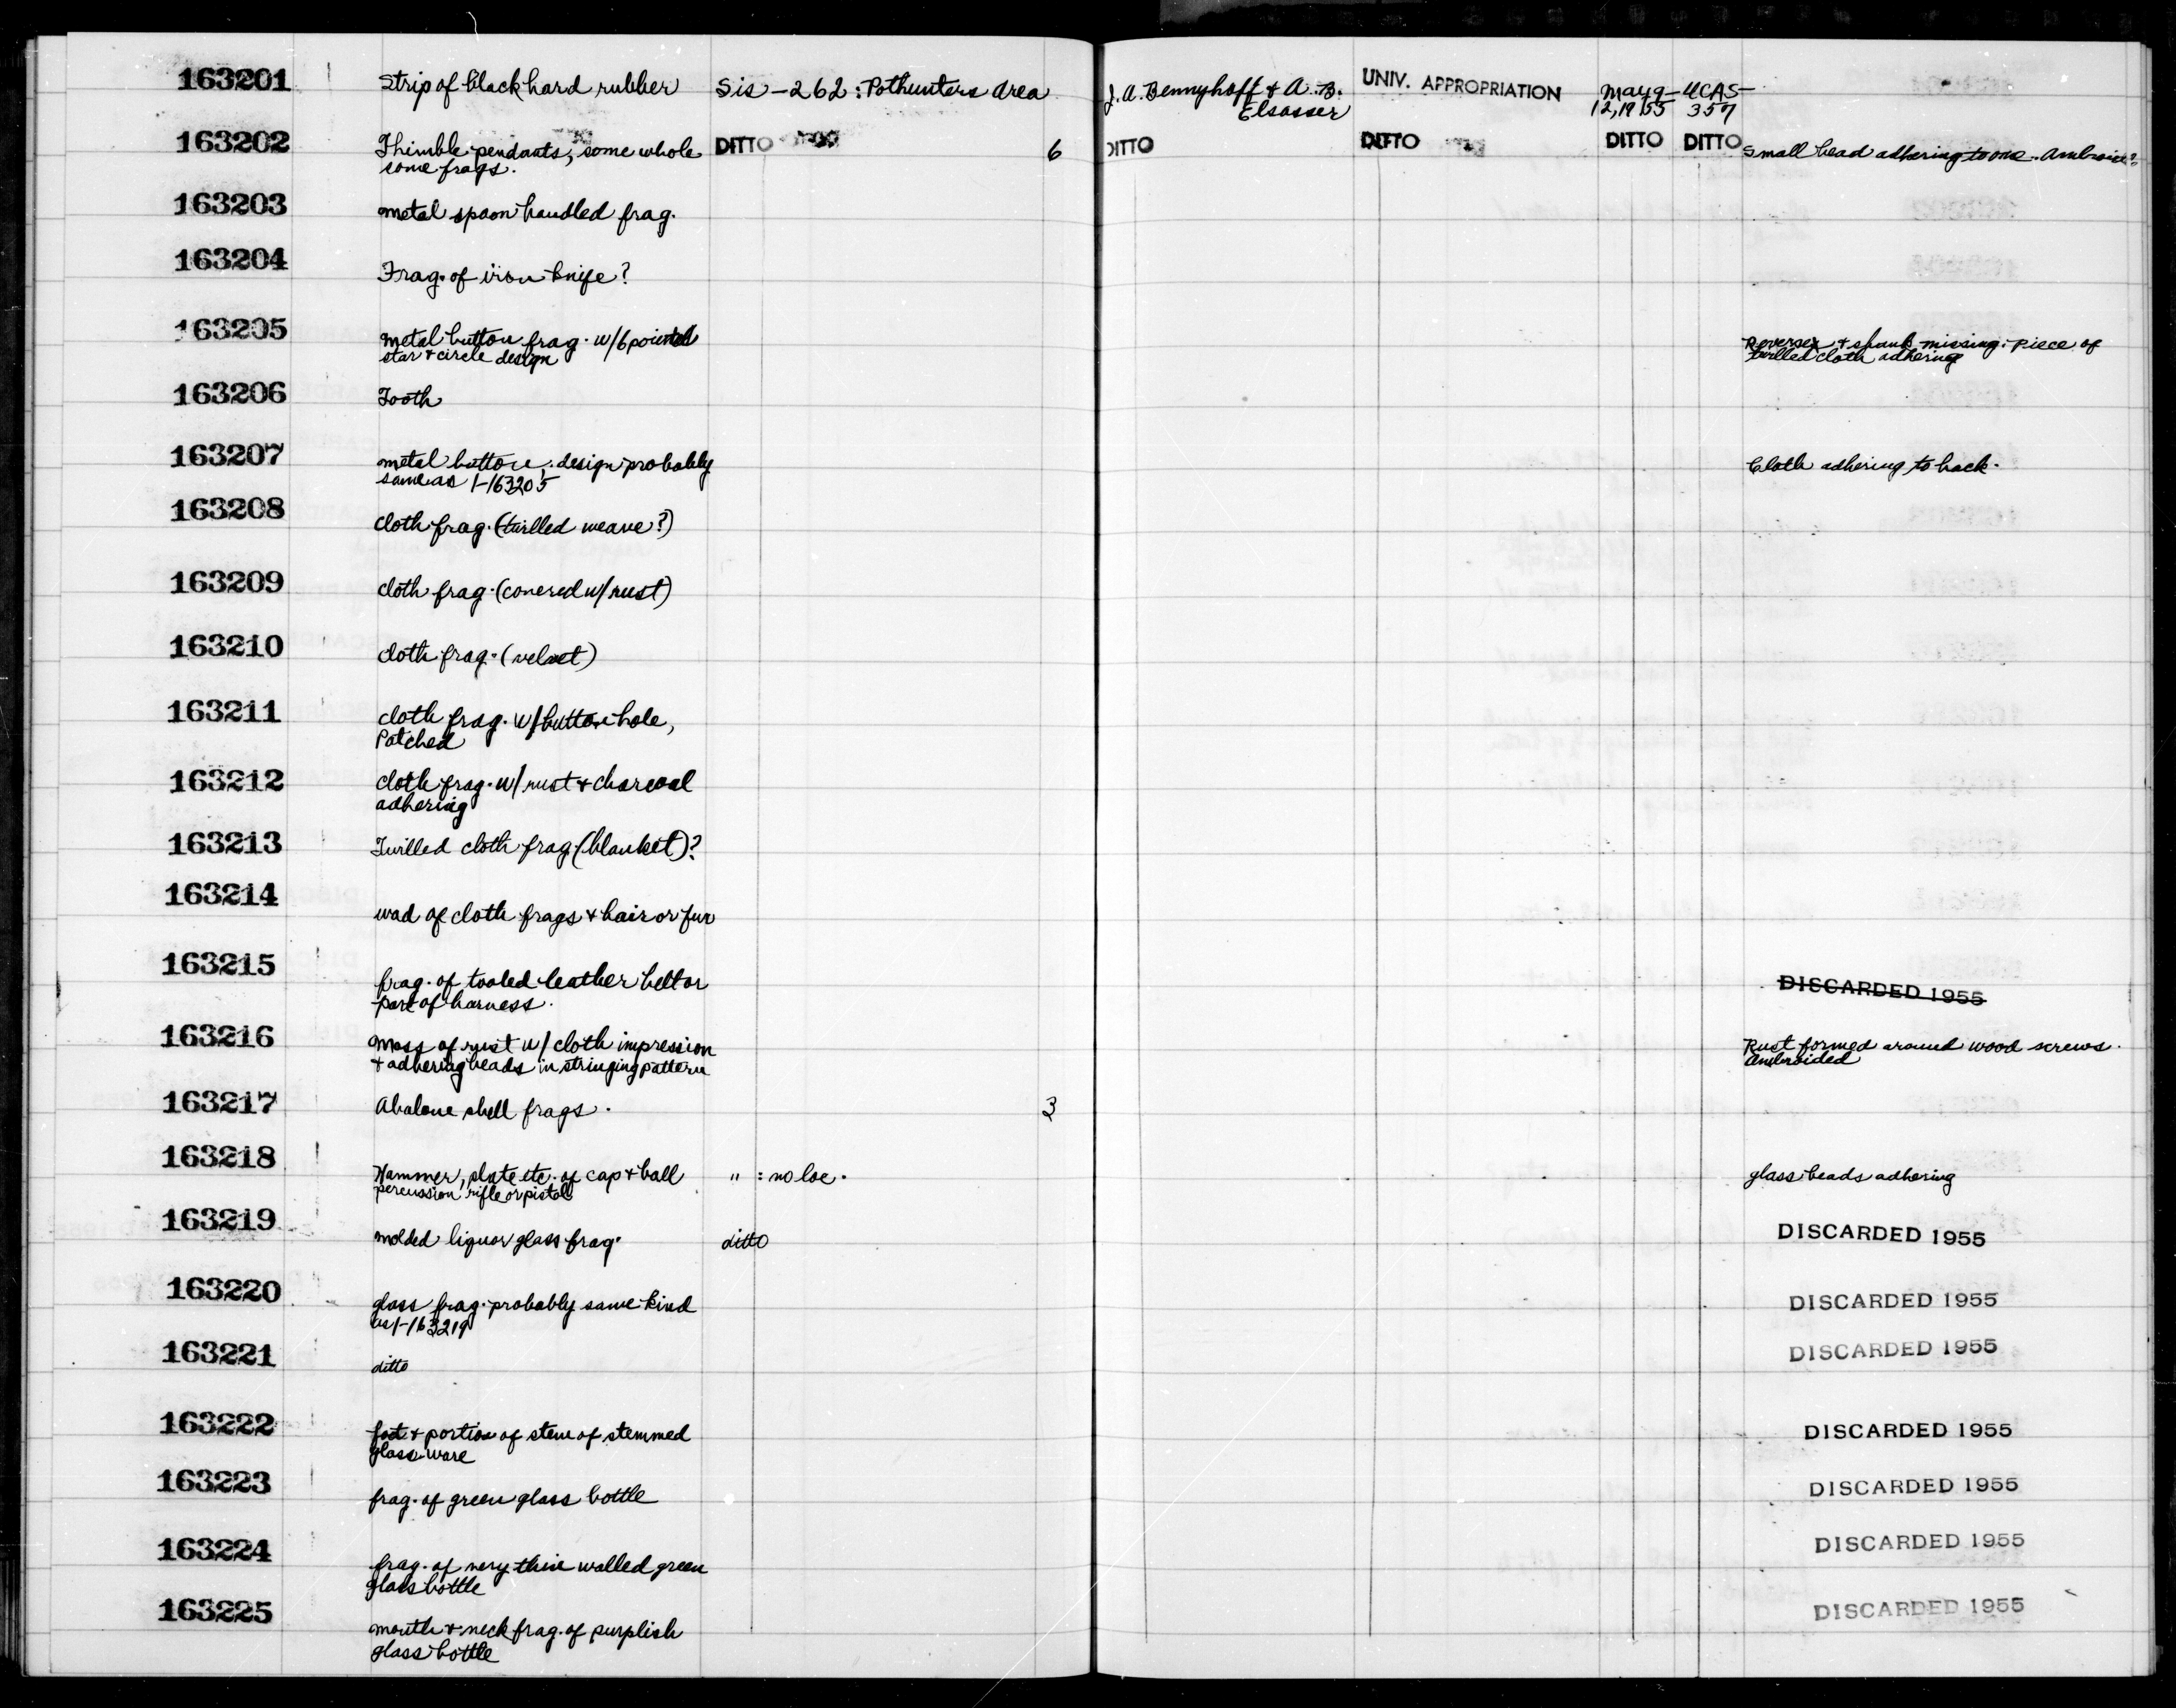 163201 Strip of black hard rubber Sis-262: Pothunters area J.A. Bennyhoff & A.B. UNIV. APPROPRIATION May 9- UCAS-
Elsasser 12, 1955 357
163202 Thimble pendants, some whole DITTO 6 DITTO DITTO DITTO DITTO Small bead adhering to one. Ambroid?
some frags.
163203 metal spoon handled frag.
163204 Frag. of iron knife?
163205 metal button frag. w/6 pointed Reverse & shank missing. piece of
star & circle design twilled cloth adhering
163206 Tooth
163207 metal button; design probably Cloth adhering to back.
same as 1-163205
163208 cloth frag. (twilled weave?)
163209 cloth frag. (covered w/ rust)
163210 cloth frag. (velvet)
163211 cloth frag. w/ button hole,
Patched
163212 cloth frag. w/ rust & charcoal
adhering
163213 Twilled cloth frag. (blanket)?
163214 wad of cloth frags & hair or fur
163215 frag. of tooled leather belt or DISCARDED 1955
part of harness.
163216 Mass of rust w/ cloth impression Rust formed around wood screws.
& adhering beads in stringing pattern Ambroided
163217 Abalone shell frags. 3
163218 Hammer, plate etc. of cap & ball " : no loc. glass beads adhering
percussion rifle or pistol
163219 molded liquor glass frag. ditto DISCARDED 1955
163220 glass frag. probably same kind DISCARDED 1955
as 1-163219
163221 ditto DISCARDED 1955
163222 foot & portion of stem of stemmed DISCARDED 1955
glass ware
163223 frag. of green glass bottle DISCARDED 1955
163224 frag. of very thin walled green DISCARDED 1955
glass bottle
163225 mouth & neck frag. of purplish DISCARDED 1955
glass bottle